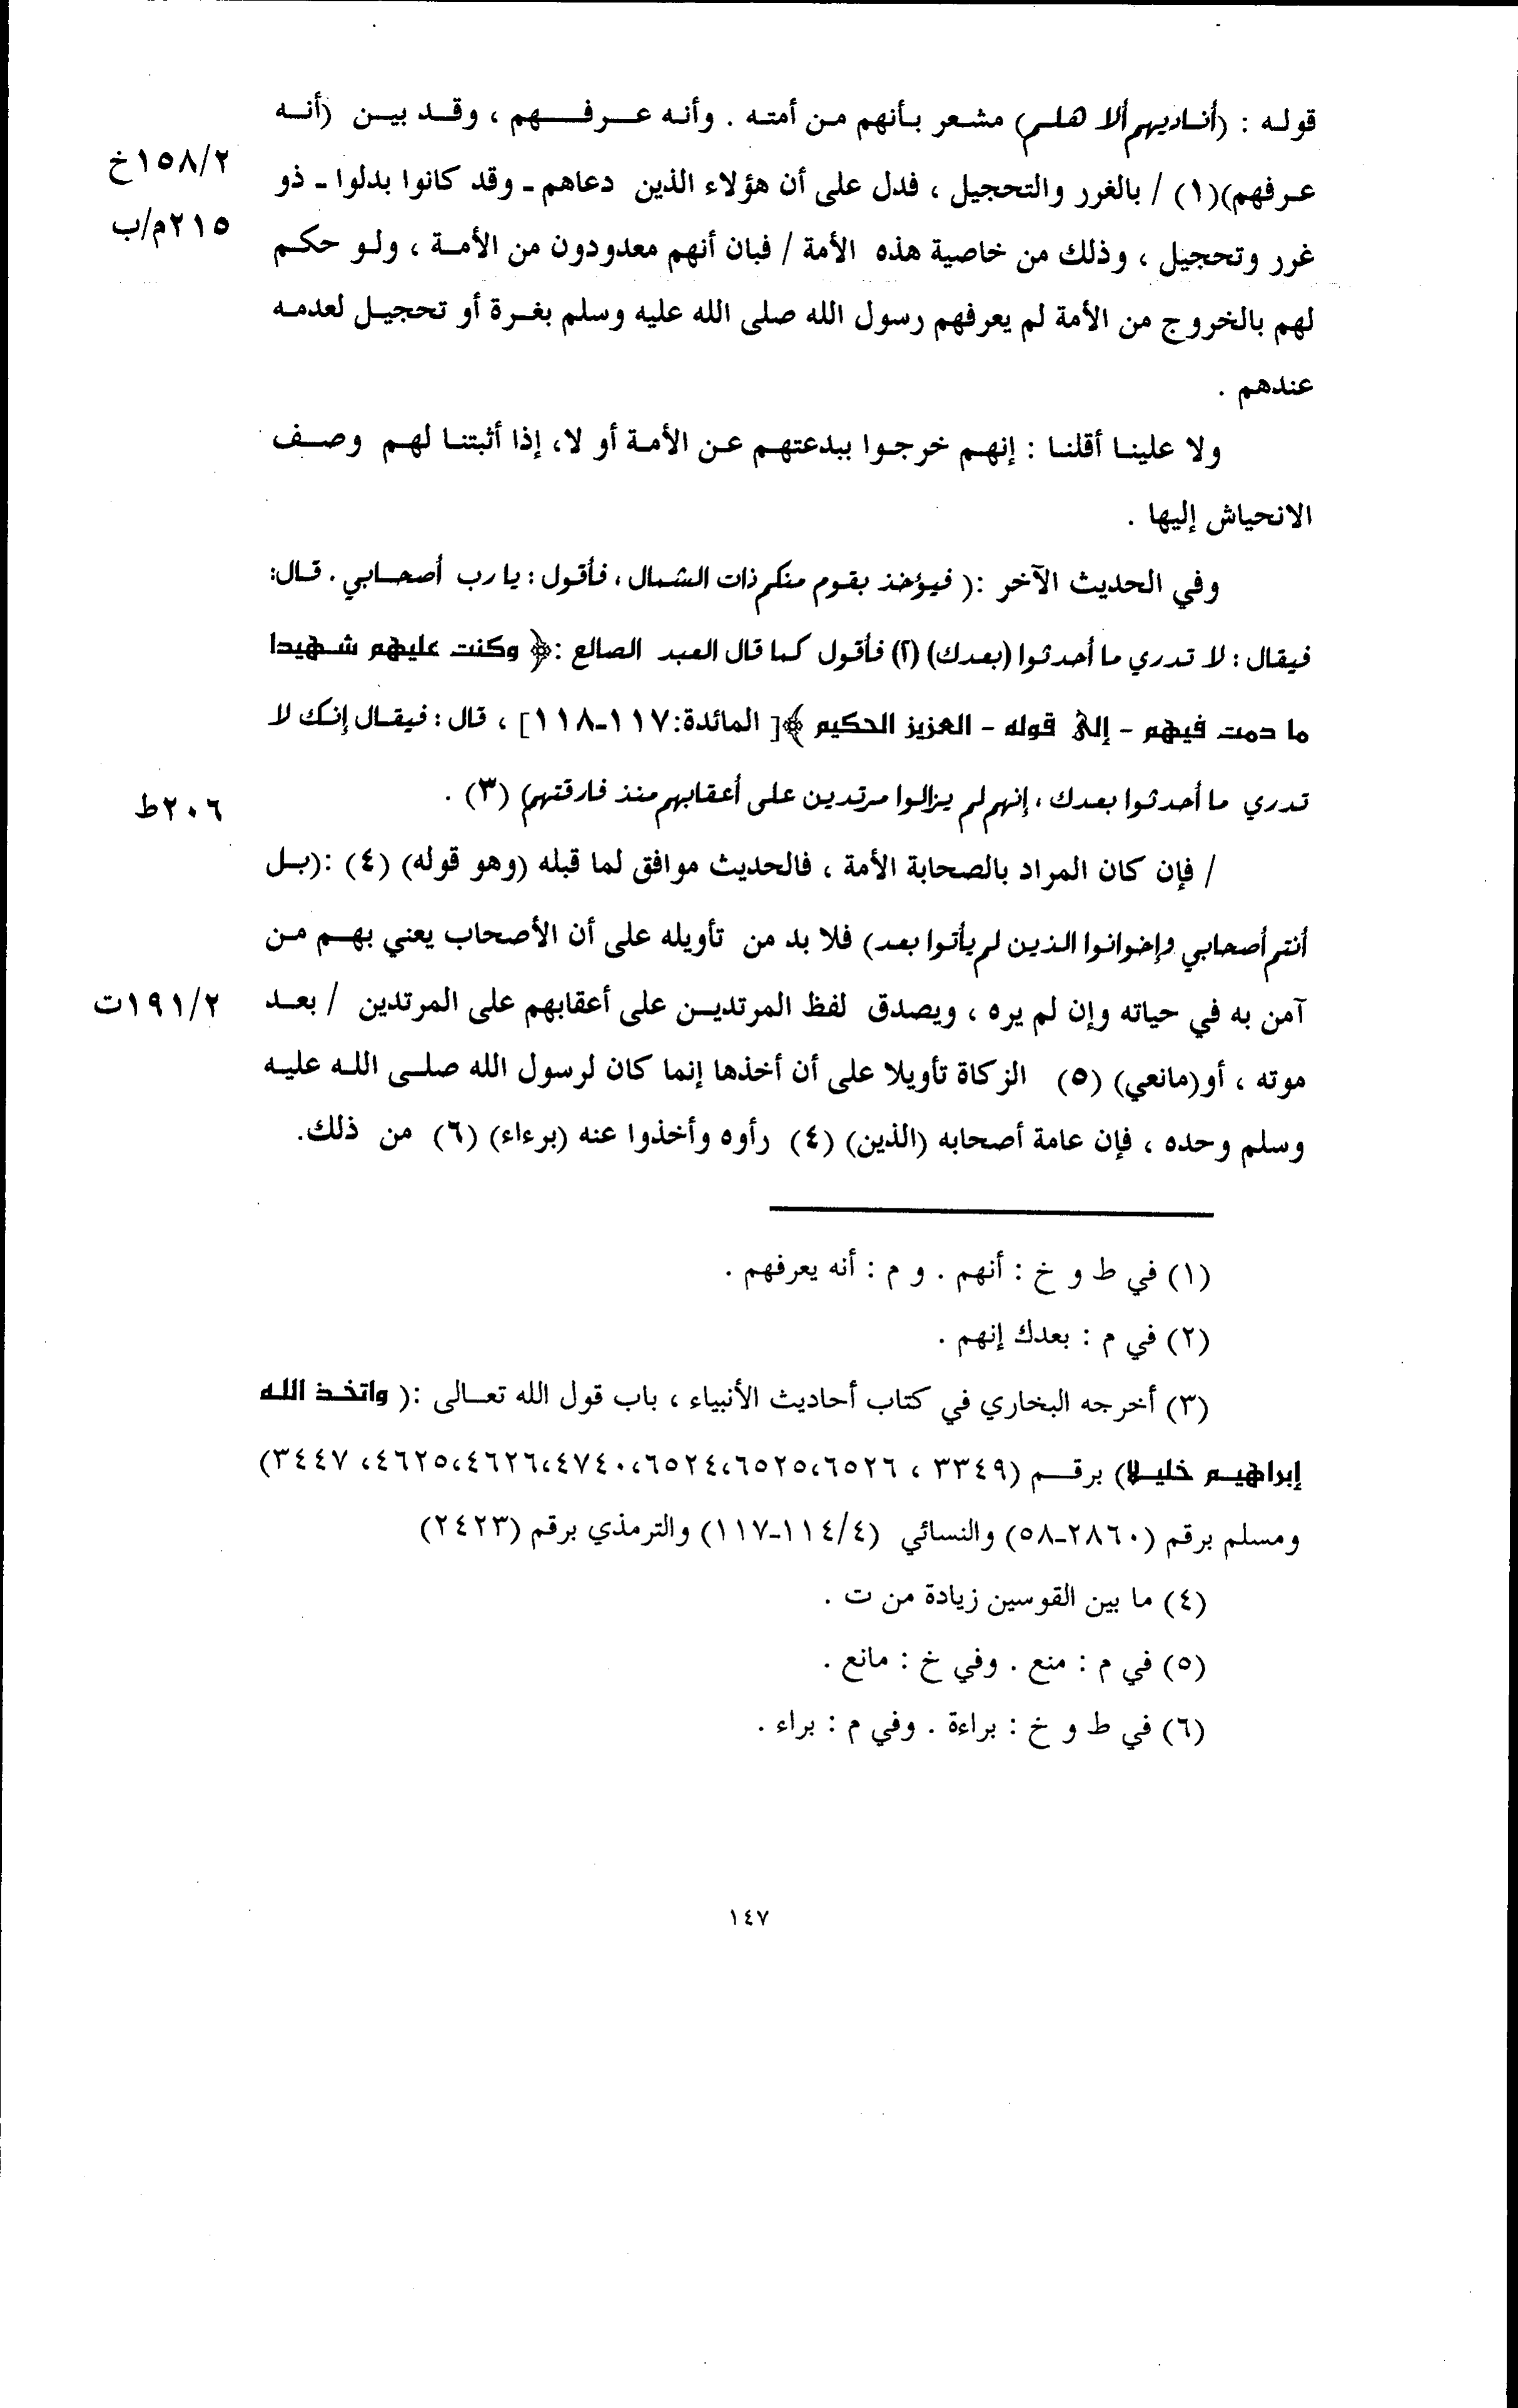 قوله : (أناديهم ألا هلم) مشعر بأنهم من أمته . وأنه عرفهم ، وقد بين (أنه
١٥٨/٢خ
عرفهم)(١) / بالغرر والتحجيل ، فدل على أن هؤلاء الذين دعاهم - وقد كانوا بدلوا - ذو
٢١٥م/ب
غرر وتحجيل ، وذلك من خاصية هذه الأمة / فبان أنهم معدودون من الأمة ، ولو حكم
لهم بالخروج من الأمة لم يعرفهم رسول الله صلى الله عليه وسلم بغرة أو تحجيل لعدمه
عندهم .
ولا علينا أقلنا : إنهم خرجوا ببدعتهم عن الأمة أو لا، إذا أثبتنا لهم وصف
الانحياش إليها .
وفي الحديث الآخر :( فيؤخذ بقوم منكم ذات الشمال ، فأقول : يا رب أصحابي . قال:
فيقال : لا تدري ما أحدثوا (بعدك) (٢) فأقول كما قال العبد الصالح :﴿ وكنت عليهم شهيدا
ما دمت فيهم - إلى قوله - العزيز الحكيم ﴾[ المائدة:١١٧-١١٨] ، قال : فيقال إنك لا
تدري ما أحدثوا بعدك ، إنهم لم يزالوا مرتدين على أعقابهم منذ فارقتهم) (٣) .
٢٠٦ط
/ فإن كان المراد بالصحابة الأمة ، فالحديث موافق لما قبله (وهو قوله) (٤) :(بل
أنتم أصحابي وإخوانوا الذين لم يأتوا بعد) فلا بد من تأويله على أن الأصحاب يعني بهم من
آمن به في حياته وإن لم يره ، ويصدق لفظ المرتدين على أعقابهم على المرتدين / بعد
١٩١/٢ت
موته ، أو(مانعي) (٥) الزكاة تأويلا على أن أخذها إنما كان لرسول الله صلى الله عليه
وسلم وحده ، فإن عامة أصحابه (الذين) (٤) رأوه وأخذوا عنه (برءاء) (٦) من ذلك.
(١) في ط و خ : أنهم . و م : أنه يعرفهم .
(٢) في م : بعدك إنهم .
(٣) أخرجه البخاري في كتاب أحاديث الأنبياء ، باب قول الله تعالى :( واتخذ الله
إبراهيم خليلا) برقم (٣٣٤٩ ، ٦٥٢٦،٦٥٢٥،٦٥٢٤،٤٧٤٠،٤٦٢٦،٤٦٢٥، ٣٤٤٧)
ومسلم برقم (٢٨٦٠-٥٨) والنسائي (١١٤/٤-١١٧) والترمذي برقم (٢٤٢٣)
(٤) ما بين القوسين زيادة من ت .
(٥) في م : منع . وفي خ : مانع .
(٦) في ط و خ : براءة . وفي م : براء .
١٤٧